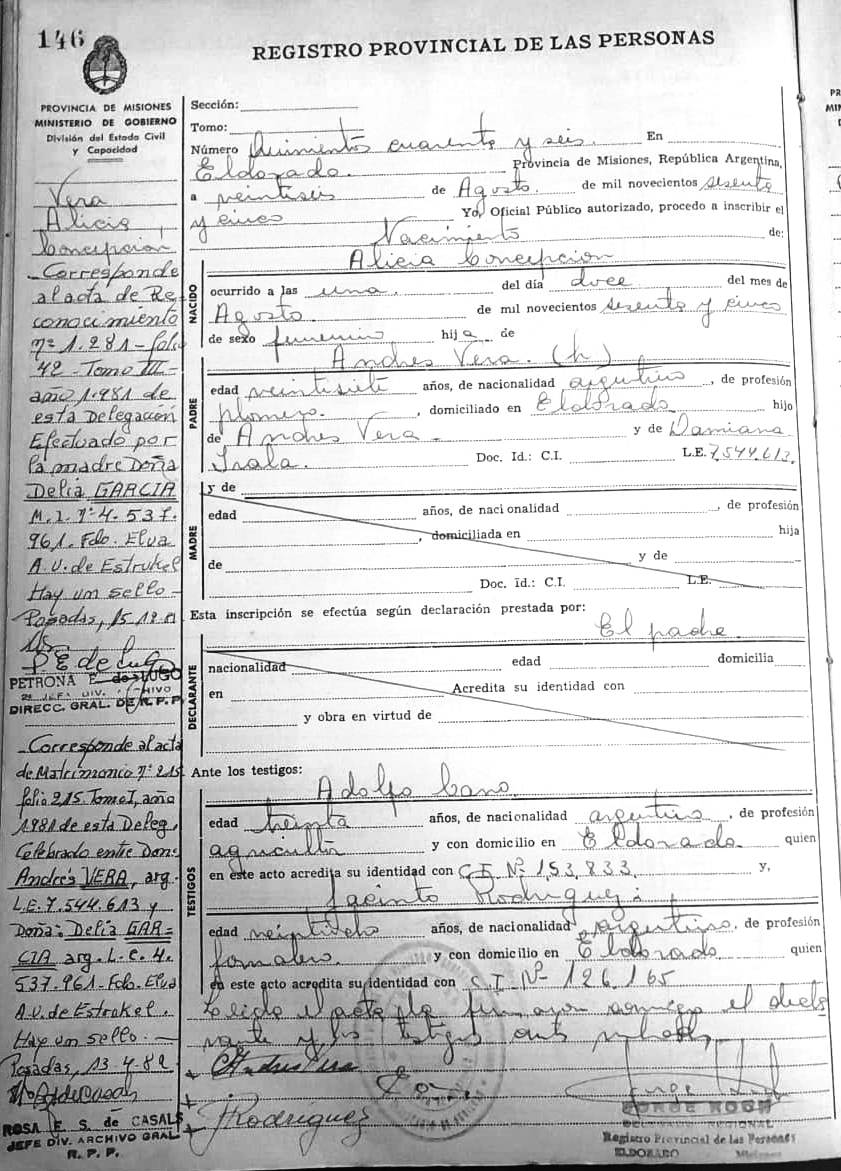 146
REGISTRO PROVINCIAL DE LAS PERSONAS
PROVINCIA DE MISIONES
MINISTERIO DE GOBIERNO
División del Estado Civil
y Capacidad
Vera
Alicia
Concepcion
Corresponde
al acta de Re-
conocimiento
nº 1.281 - folio
42 - Tomo III -
año 1.981 de
esta Delegación
Efectuado por
la madre Doña
Delia GARCIA
M.I. nº 4.537.
961. Fdo. Elva
A.V. de Estrukel
Hay un sello -
Posadas, 15.12.81
PETRONA E. de LUGO
2º JEFA DIV. ARCHIVO
DIRECC. GRAL. DE R. P. P.
Corresponde al acta
de Matrimonio nº 215
folio 215. Tomo I, año
1981 de esta Deleg.
Celebrado entre Don:
Andrés VERA, arg.
L.E. 7.544.613 y
Doña: Delia GAR=
CIA arg. L.C. 4.
537.961. Fdo. Elva
A.V. de Estrukel.
Hay un sello.
Posadas, 13.4.82
ROSA E. S. de CASALS
JEFE DIV. ARCHIVO GRAL.
R. P. P.
Sección:
Tomo:
Número Quinientos cuarenta y seis. En
Eldorado. Provincia de Misiones, República Argentina,
a veintiseis de Agosto. de mil novecientos sesenta
y cinco Yo, Oficial Público autorizado, procedo a inscribir el
Nacimiento de:
NACIDO
Alicia Concepcion
ocurrido a las una. del día doce del mes de
Agosto de mil novecientos sesenta y cinco
de sexo femenino hija de
PADRE
Andres Vera. (h)
edad veintisiete años, de nacionalidad argentino, de profesión
plomero. , domiciliado en Eldorado hijo
de Andres Vera. y de Damiana
Irala. Doc. Id.: C.I. L.E. 7,544,613,
MADRE
y de
edad años, de nacionalidad , de profesión
, domiciliada en hija
de y de
Doc. Id.: C.I. L.E.
Esta inscripción se efectúa según declaración prestada por:
El padre.
DECLARANTE
nacionalidad edad domicilia
en Acredita su identidad con
y obra en virtud de
Ante los testigos:
TESTIGOS
Adolfo Cano.
edad treinta años, de nacionalidad argentino, de profesión
agricultor y con domicilio en Eldorado quien
en este acto acredita su identidad con C.I. Nº 153,833. y,
Jacinto Rodriguez:
edad veintiocho años, de nacionalidad argentino, de profesión
jornalero. y con domicilio en Eldorado quien
en este acto acredita su identidad con C.I. Nº 126,165
Leida el acta la firman conmigo el decla
rante y los testigos
Andres Vera
JRodriguez
JORGE ROCH
DELEGADO REGIONAL
Registro Provincial de las Personas
ELDORADO Misiones